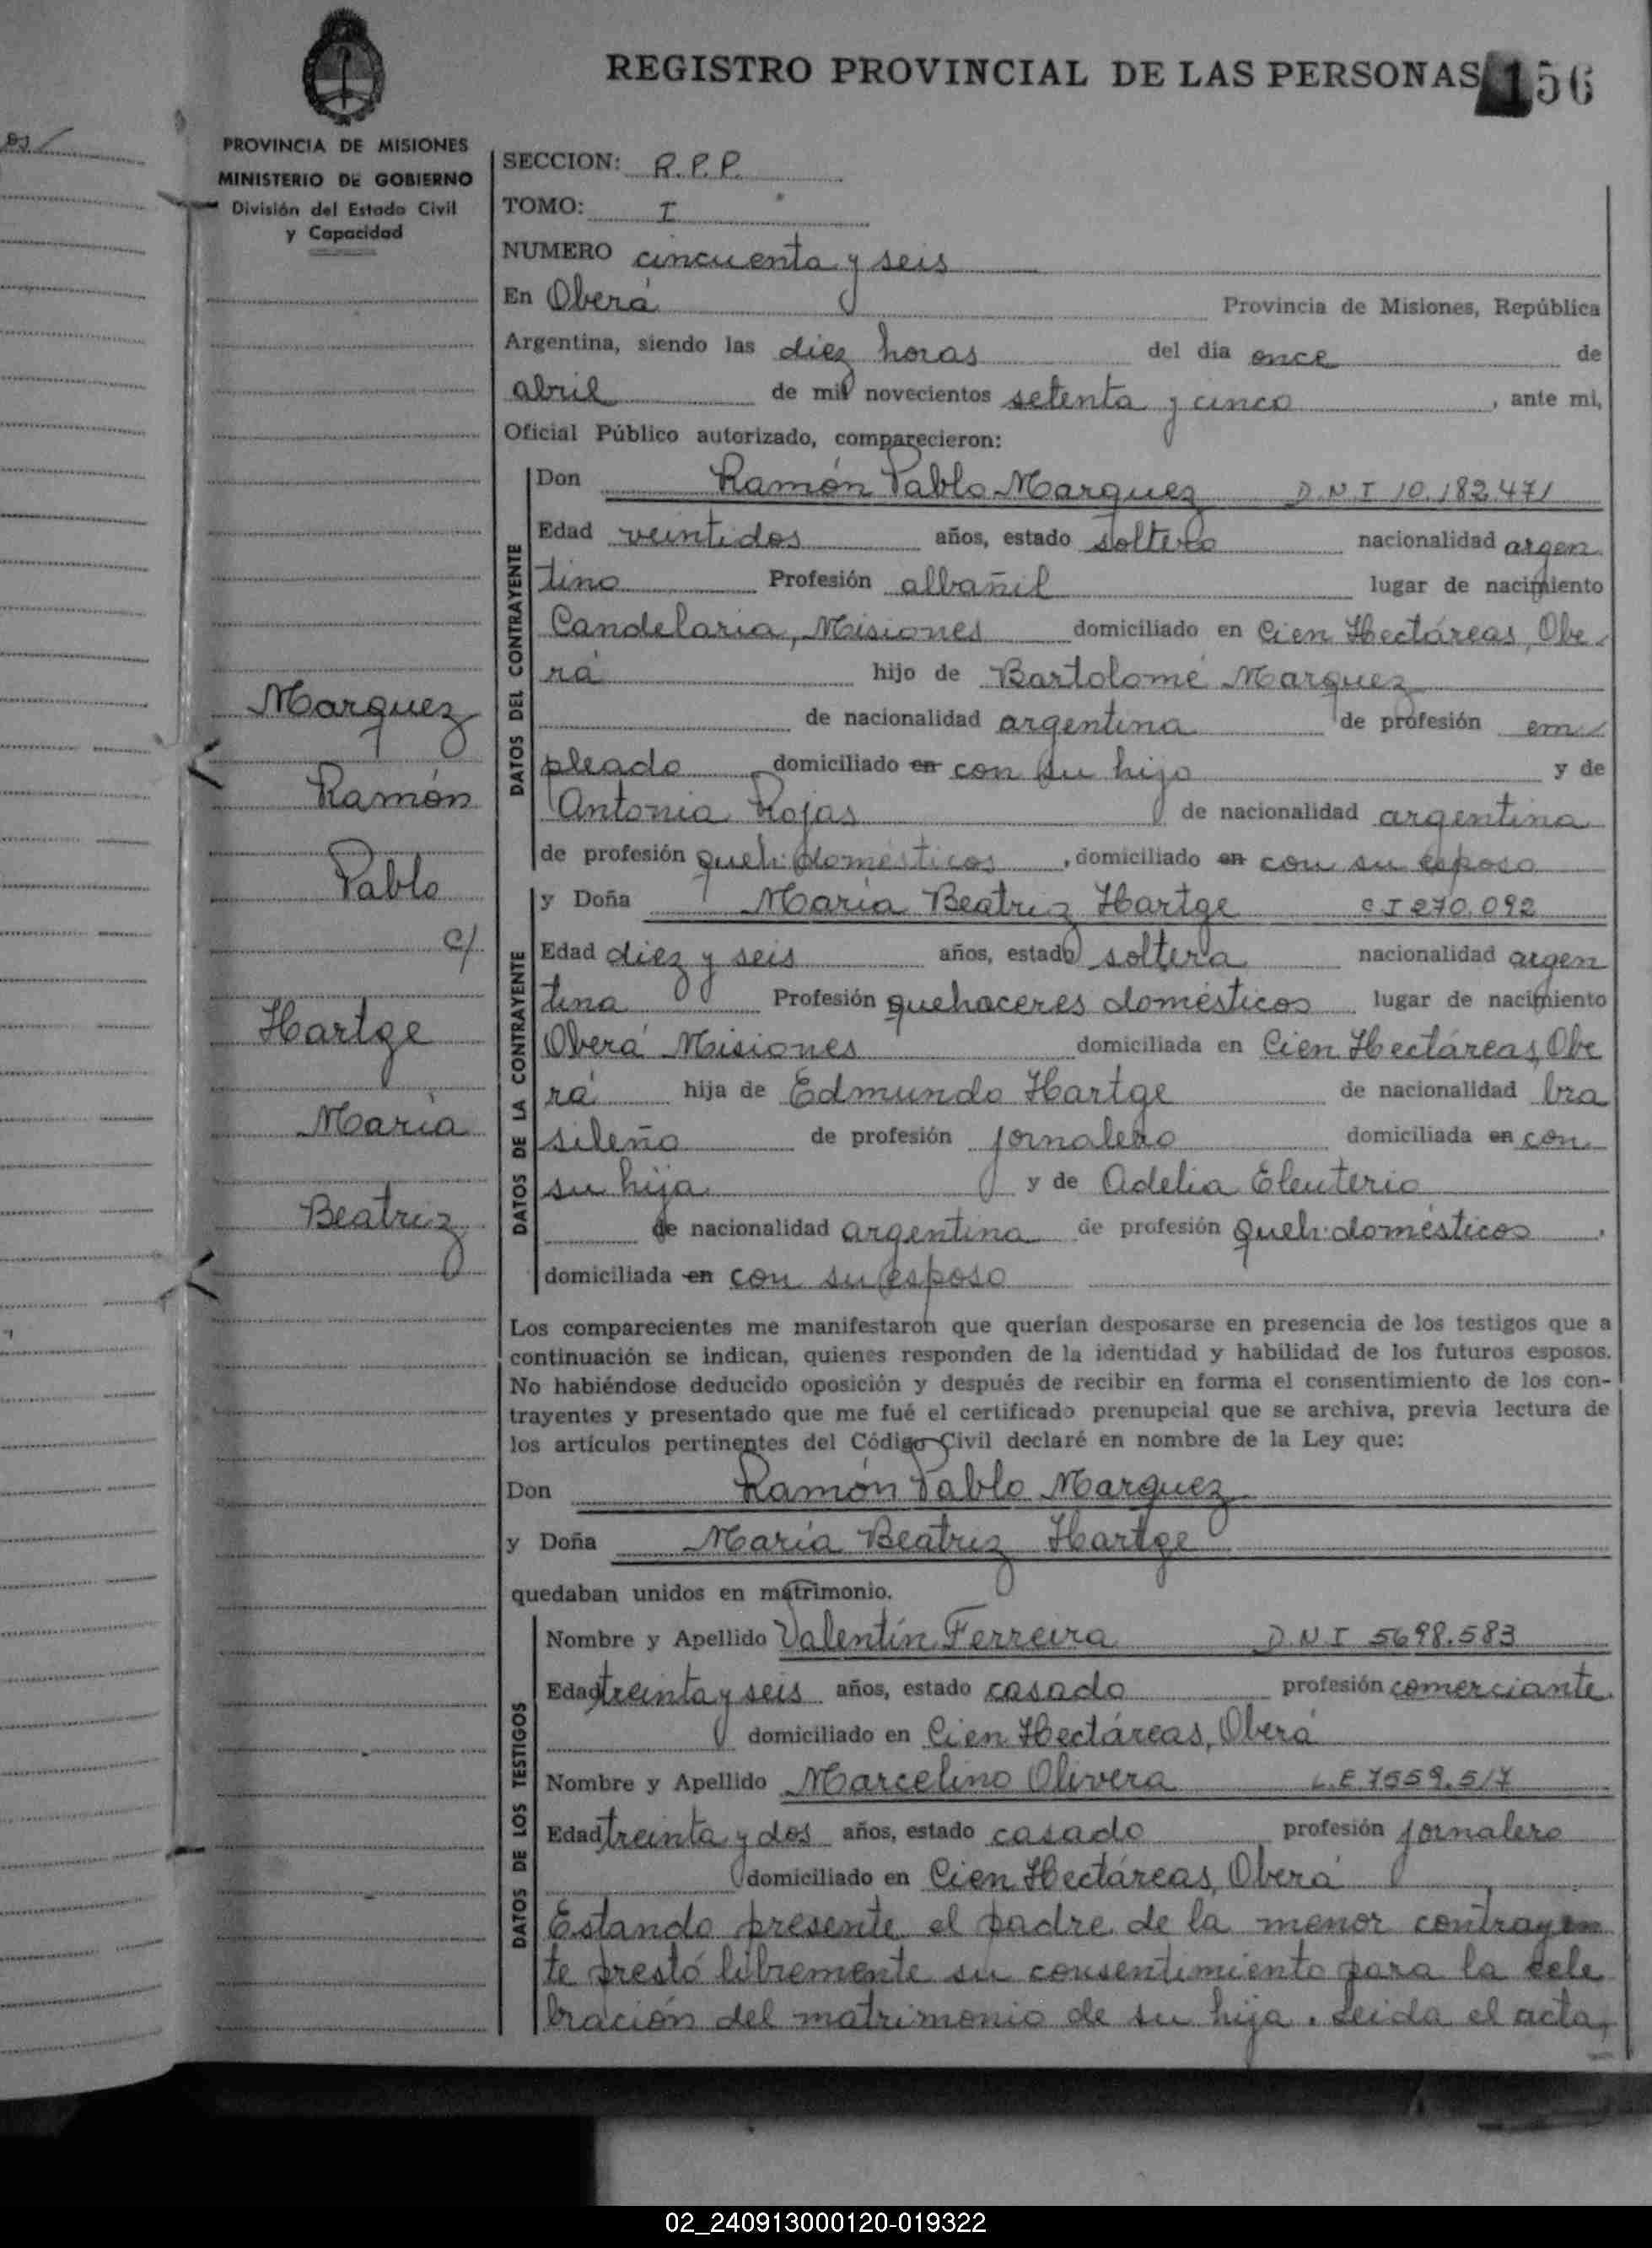 REGISTRO PROVINCIAL DE LAS PERSONAS 156
PROVINCIA DE MISIONES
MINISTERIO DE GOBIERNO
División del Estado Civil
y Capacidad
SECCION: R.P.P.
TOMO: I
NUMERO cincuenta y seis
En Oberá Provincia de Misiones, República
Argentina, siendo las diez horas del dia once de
abril de mil novecientos setenta y cinco, ante mi,
Oficial Público autorizado, comparecieron:
DATOS DEL CONTRAYENTE
Don Ramón Pablo Marquez D.N.I 10.182.471
Edad veintidos años, estado soltero nacionalidad argen
tino Profesión albañil lugar de nacimiento
Candelaria, Misiones domiciliado en Cien Hectáreas, Obe
rá hijo de Bartolomé Marquez
de nacionalidad argentina de profesión em/
pleado domiciliado en con su hijo y de
Antonia Rojas de nacionalidad argentina
de profesión queh. domésticos, domiciliado en con su esposo
Marquez
Ramón
Pablo
c/
Hartge
María
Beatriz
DATOS DE LA CONTRAYENTE
y Doña María Beatriz Hartge C I 270.092
Edad diez y seis años, estado soltera nacionalidad argen
tina Profesión quehaceres domésticos lugar de nacimiento
Oberá Misiones domiciliada en Cien Hectáreas, Obe
rá hija de Edmundo Hartge de nacionalidad bra
sileño de profesión jornalero domiciliada en con
su hija y de Adelia Eleuterio
de nacionalidad argentina de profesión queh. domésticos,
domiciliada en con su esposo
Los comparecientes me manifestaron que querían desposarse en presencia de los testigos que a
continuación se indican, quienes responden de la identidad y habilidad de los futuros esposos.
No habiéndose deducido oposición y después de recibir en forma el consentimiento de los con-
trayentes y presentado que me fué el certificado prenupcial que se archiva, previa lectura de
los artículos pertinentes del Código Civil declaré en nombre de la Ley que:
Don Ramón Pablo Marquez
y Doña María Beatriz Hartge
quedaban unidos en matrimonio.
DATOS DE LOS TESTIGOS
Nombre y Apellido Valentín Ferreira D.N.I 5698.583
Edad treinta y seis años, estado casado profesión comerciante
domiciliado en Cien Hectáreas, Oberá
Nombre y Apellido Marcelino Olivera L.E 7559.517
Edad treinta y dos años, estado casado profesión jornalero
domiciliado en Cien Hectáreas, Oberá
Estando presente el padre de la menor contrayen
te prestó libremente su consentimiento para la cele
bración del matrimonio de su hija. Leida el acta,
02_240913000120-019322